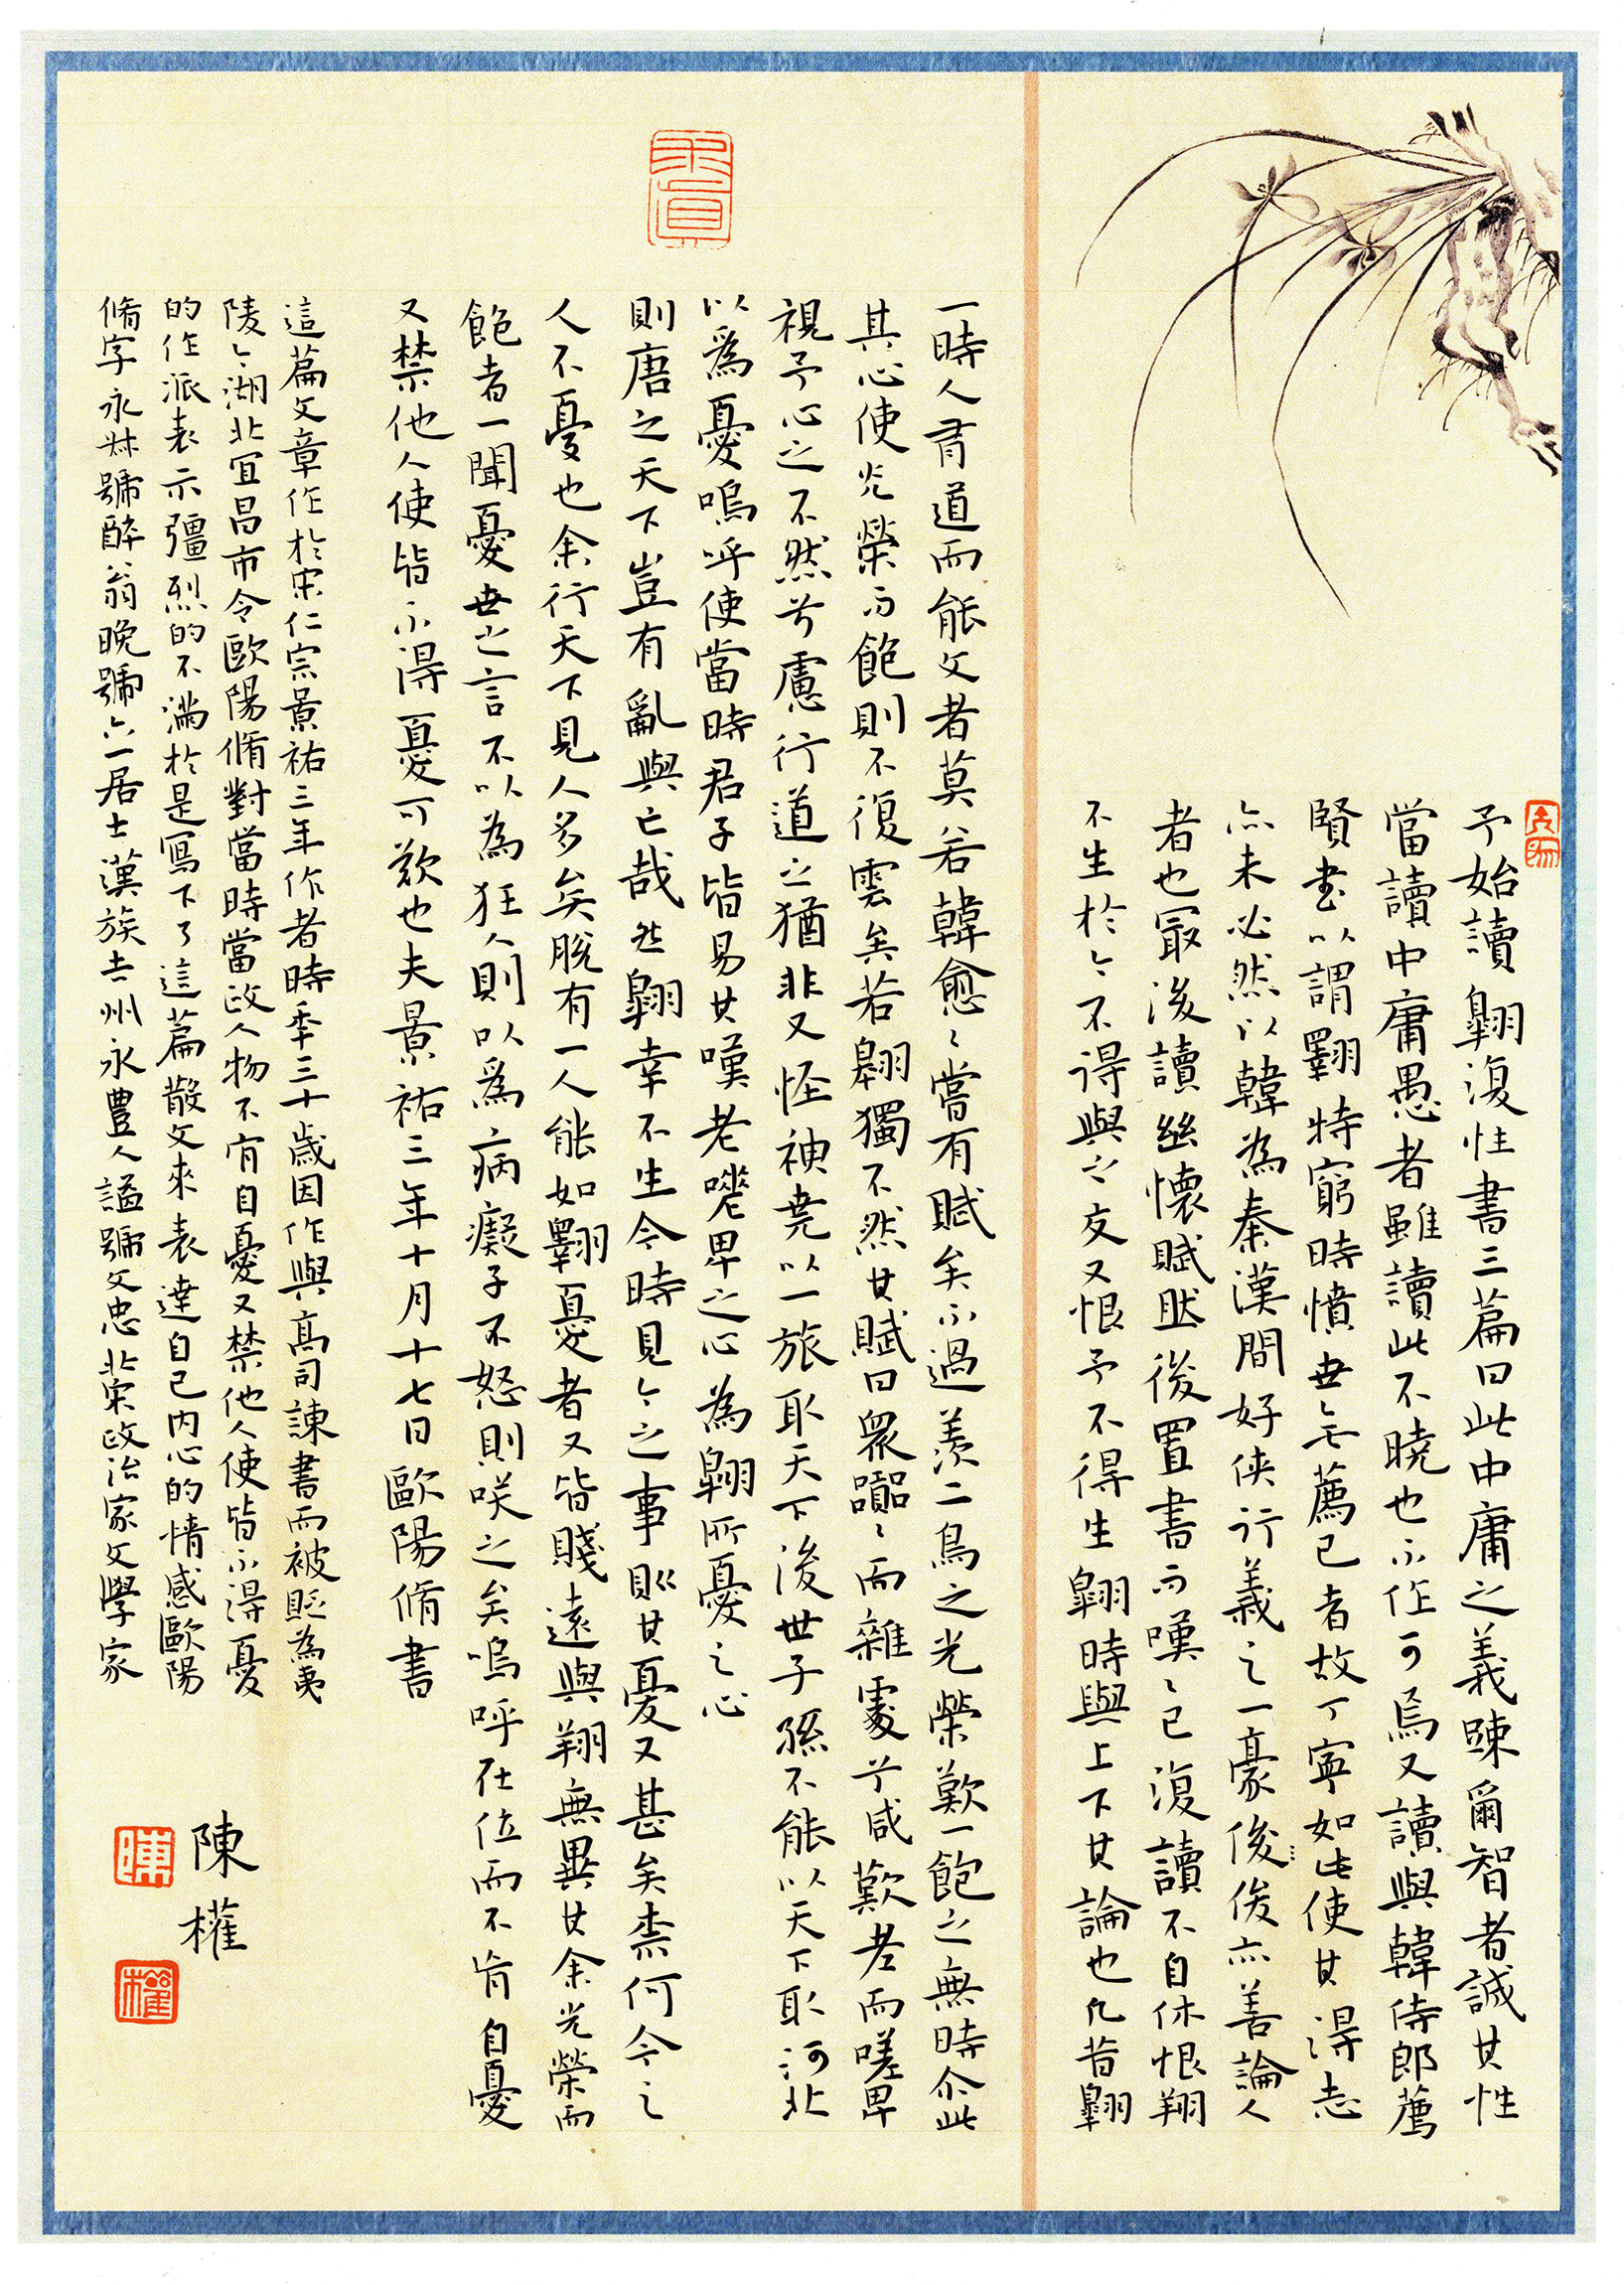 予始讀翺復性書三篇曰此中庸之義踈爾智者誠其性
當讀中庸愚者雖讀此不曉也不作可焉又讀與韓侍郎薦
賢書以謂翺特窮時憤世無薦己者故丁寧如此使其得志
亦未必然以韓為秦漢間好俠行義之一豪俊俊亦善論人
者也最後讀幽懷賦然後置書而嘆〻已復讀不自休恨翔
不生於今不得與之友又恨予不得生翺時與上下其論也凡昔翺
一時人有道而能文者莫若韓愈〻嘗有賦矣不過羨二鳥之光榮歎一飽之無時尒此
其心使光榮而飽則不復雲矣若翺獨不然其賦曰衆囂〻而雜處兮咸歎老而嗟卑
視予心之不然兮慮行道之猶非又怪神堯以一旅取天下後世子孫不能以天下取河北
以為憂嗚呼使當時君子皆易其嘆老嗟卑之心為翺所憂之心
則唐之天下豈有亂與亡哉然翺幸不生今時見今之事則其憂又甚矣柰何今之
人不憂也余行天下見人多矣脫有一人能如翺憂者又皆賤遠與翔無異其余光榮而
飽者一聞憂世之言不以為狂人則以為病癡子不怒則咲之矣嗚呼在位而不肯自憂
又禁他人使皆不得憂可歎也夫景祐三年十月十七日歐陽脩書
這篇文章作於宋仁宗景祐三年作者時年三十歲因作與高司諫書而被貶為夷
陵今湖北宜昌市令歐陽脩對當時當政人物不肯自憂又禁他人使皆不得憂
的作派表示彊烈的不滿於是寫下了這篇散文來表達自己内心的情感歐陽
脩字永叔號醉翁晚號六一居士漢族吉州永豐人謚號文忠北宋政治家文學家
陳權
陳
權